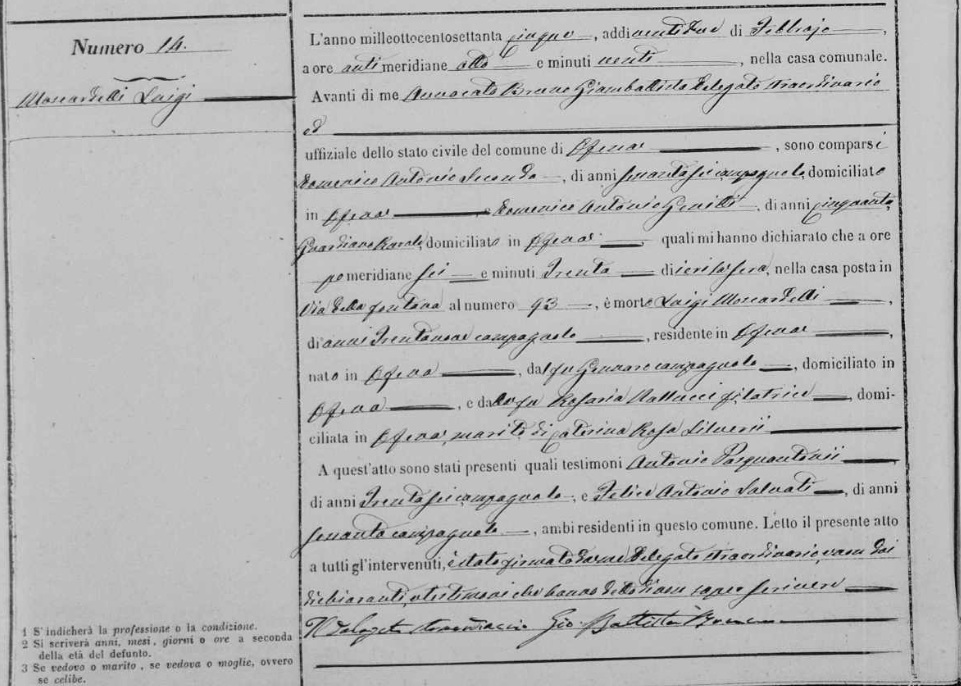 Numero 14.
Moscardelli Luigi
L'anno milleottocentosettanta cinque, addi ventidue di Febbrajo,
a ore anti meridiane otto e minuti venti, nella casa comunale.
Avanti di me Avvocato Bruno Giambattista Delegato straordinario
ed
uffiziale dello stato civile del comune di Ofena, sono comparsi
Domenico Antonio Secondo, di anni sessanta sei campagnolo, domiciliato
in Ofena, e Domenico Antonio Gentili, di anni cinquanta,
Guardiano Rurale, domiciliato in Ofena quali mi hanno dichiarato che a ore
po meridiane sei e minuti Trenta di ieri la sera, nella casa posta in
Via della fontana al numero 93, è morto Luigi Moscardelli,
di anni Trentanove campagnolo, residente in Ofena,
nato in Ofena, dal fu Gennaro campagnolo, domiciliato in
Ofena, e da la fu Rosaria filatrice, domi-
ciliata in Ofena, marito di Caterina Rosa Silverii
A quest'atto sono stati presenti quali testimoni Antonio Pasquantonii
di anni Trenta sei campagnolo, e Felice Antonio Salvati, di anni
sessanta campagnolo, ambi residenti in questo comune. Letto il presente atto
a tutti gl'intervenuti, è stato firmato da me Delegato straordinario, e non dai
dichiaranti, e testimoni che hanno detto di non sapere scrivere
Il Delegato straordinario Gio Battista Bruno
1 S'indicherà la professione o la condizione.
2 Si scriverà anni, mesi, giorni o ore a seconda
della età del defunto.
3 Se vedovo o marito, se vedova o moglie, ovvero
se celibe.